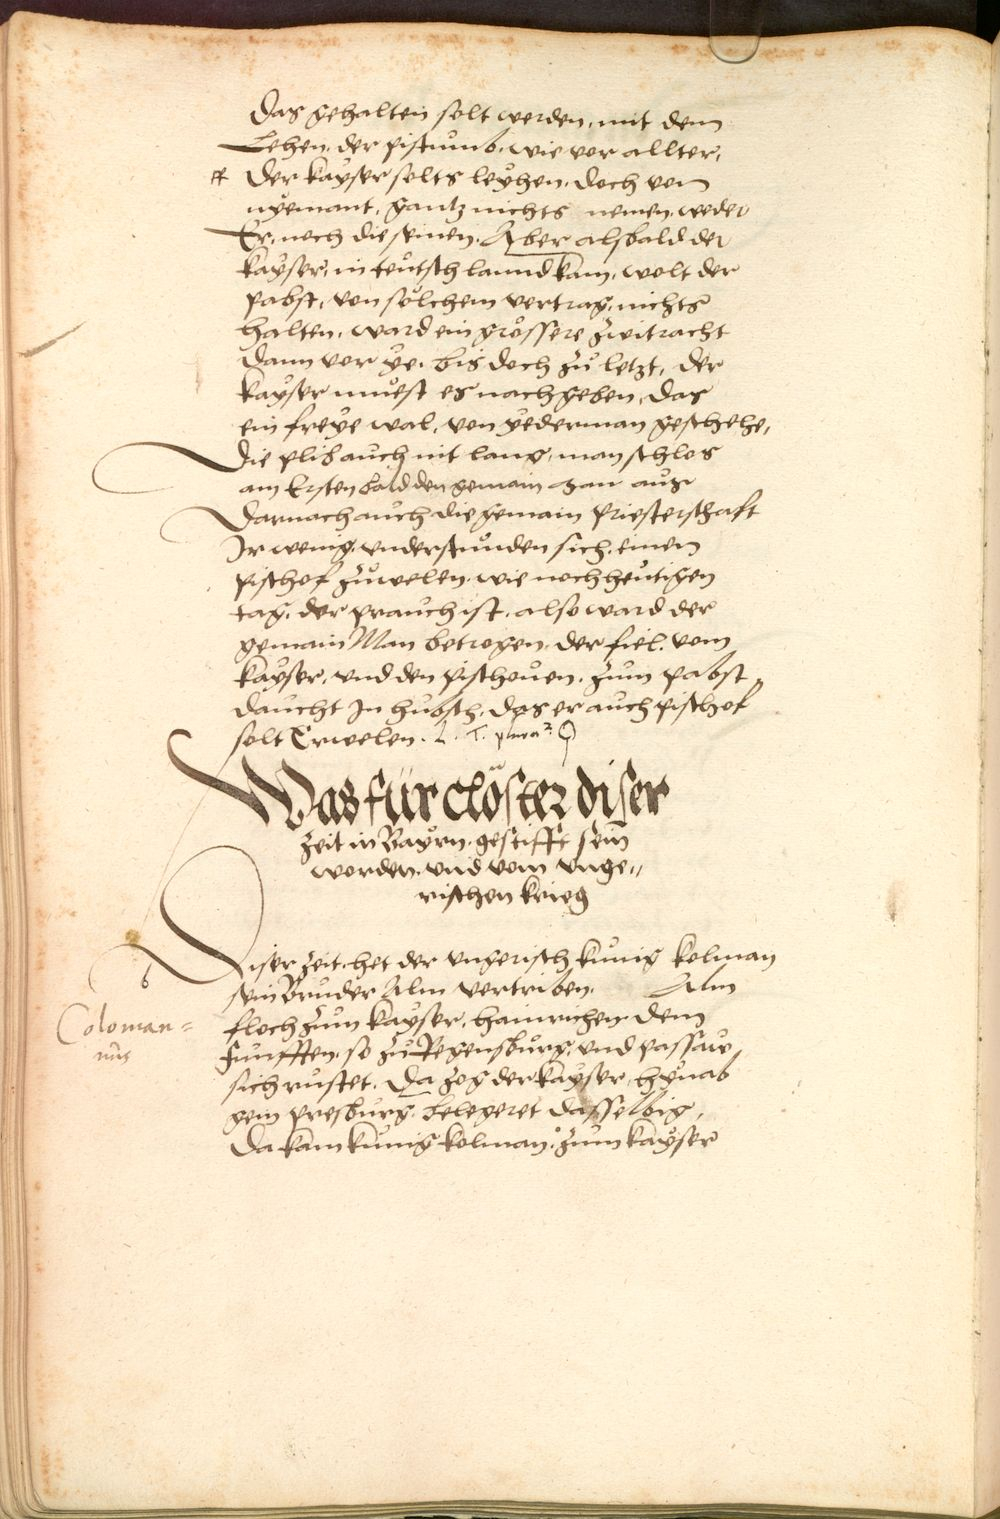 Das gehalten solt werden, mit dem
Lehen, der pistumb, wie vor allter,
Der kayser solts leyhen, doch von
nyemant, gantz nichts nemen, weder
Er, noch die seinen. Aber alsbald der
kayser, in teutsch lannd kam, wolt der
pabst, von sölchem vertrag, nichts
halten, ward ein grössere zwitracht
dann vor ye, bis doch zu letzt, der
kayser muest es nachgeben, das
ein freye wal, von yederman geschehe,
die plib auch nit lang, man schlos
am Ersten bald den gemain man aus
Darnach auch die gemain priesterschaft
Ir wenig, understunden sich, einen
pischof zuwelen, wie noch heutigen
tag, der prauch ist, also ward der
gemain Man betrogen, der fiel, vom
kayser, und den pischouen, zum pabst,
daucht In hubsch, das er auch pischof
solt Erwelen.
Was für clöster diser
zeit in Bayrn, gestifft sein
worden, und vom unge„
rischen krieg
Diser zeit, het der ungerisch kunig kolman
sein Bruder Alm vertriben. Alm
floch zum kayser, hainrichen dem
funfften, so zu Regensburg, und passaw,
sich rustet, Da zog der kayser, hynab
gein presburg, belegeret dasselbig,
Da kam kunig kolman, zum kayser
6
Coloman=
nus